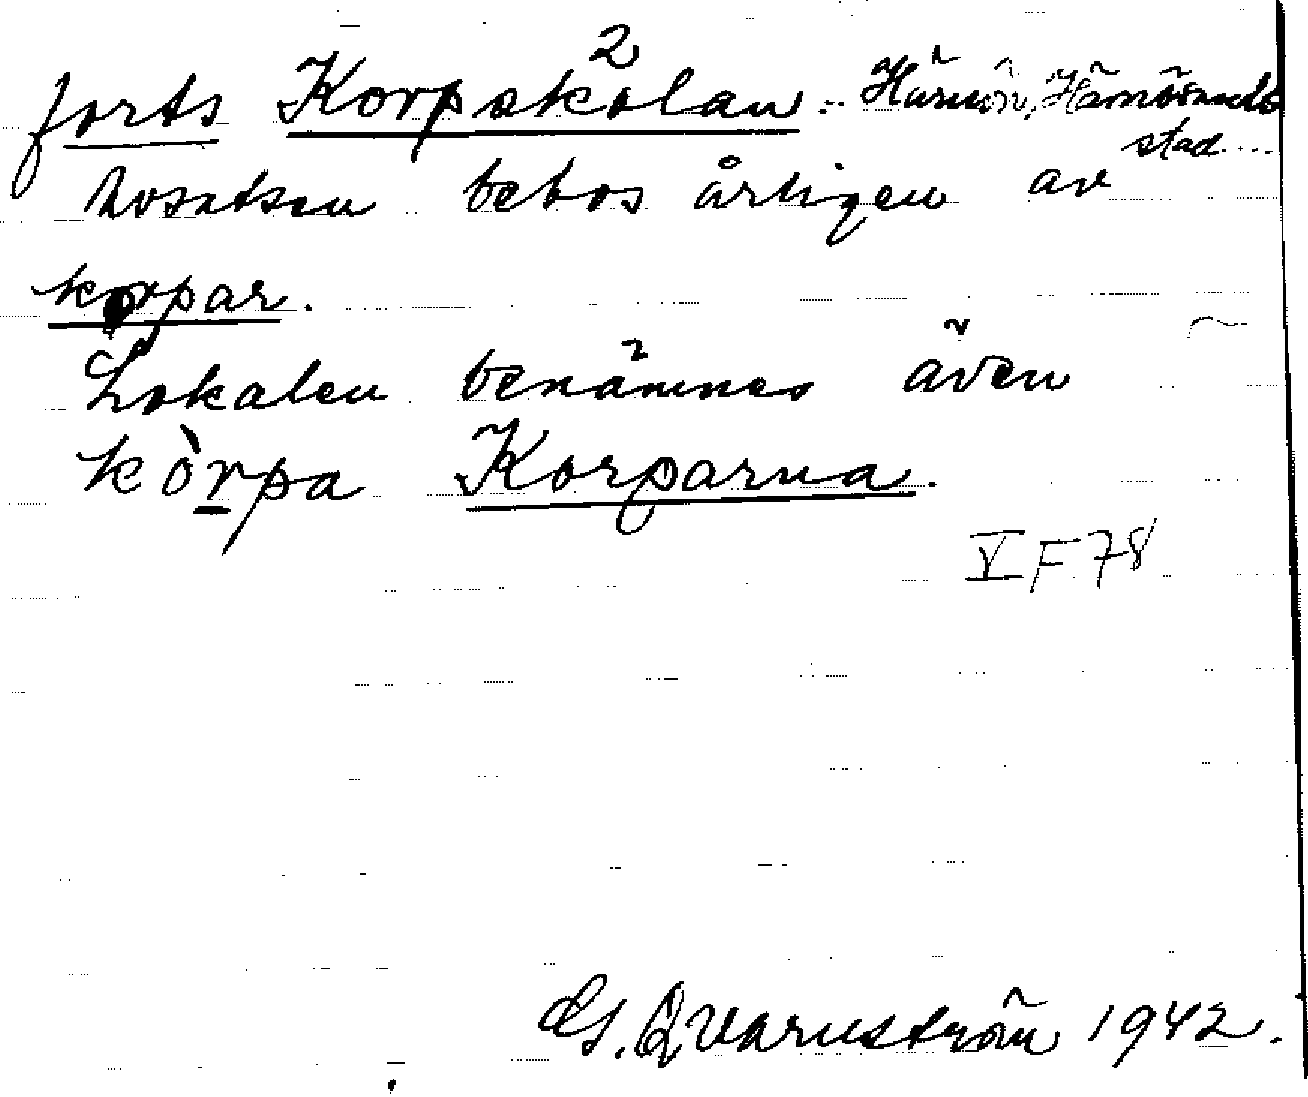 2
forts Korpskolan. Härnön, Härnösands
stad
bosatsen bebos årligen av
korpar.
Lokalen benämnes även
kòrpa Korparna.
V F 78
G. Qvarnström 1942.